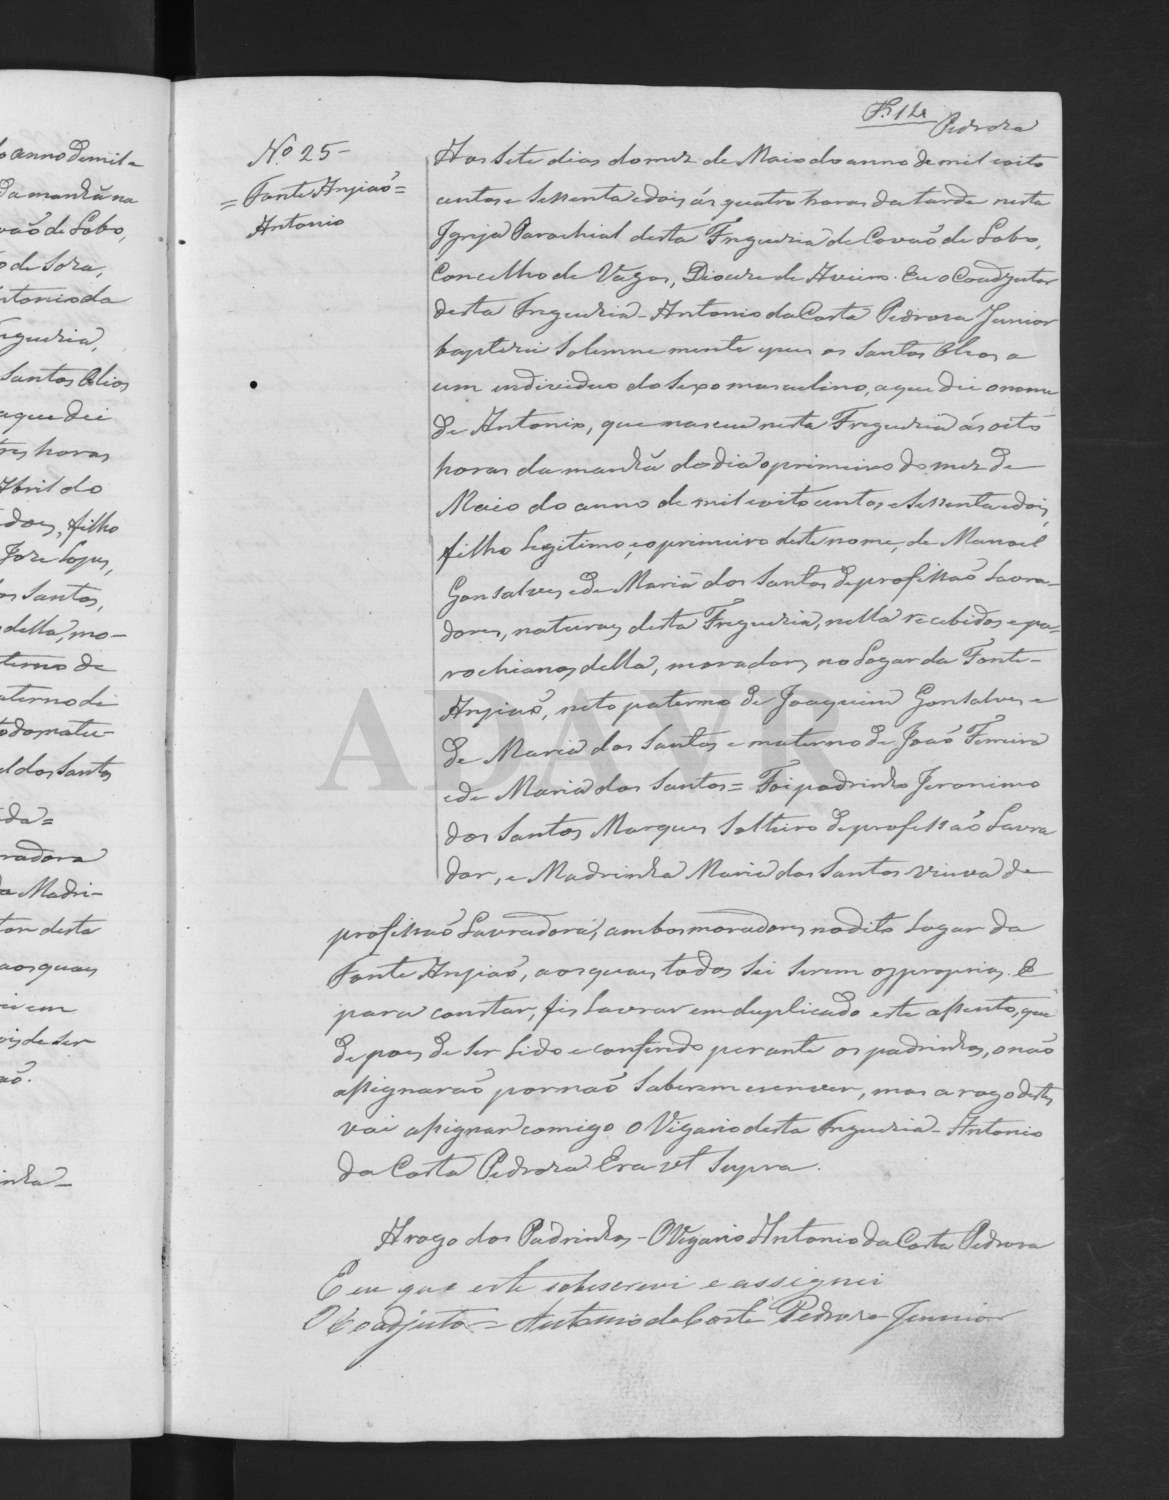 Fl. 12
Pedroza
o anno de mil e
da manhã na
vão de Lobo,
de Soza,
ntonio da
reguezia,
Santos Olios
a que dei
tres horas
Abril do
e dois, filho
Joze Lopes,
os Santos,
della, mo-
terno de
aterno de
do matri-
el dos Santos
da =
radora
da Madri-
tor desta
aos quaes
vi em
ois de ser
aõ.
inha _
Nº 25 -
= Fonte Anjiaõ =
Antonio
Aos Sete dias do mez de Maio do anno de mil e oito
centos e Sessenta e dois ás quatro horas da tarde nesta
Igreja Parochial desta Freguezia de Covaõ de Lobo,
Concelho de Vagos, Dioceze de Aveiro. Eu o Coadjutor
desta Freguezia - Antonio da Costa Pedroza Junior
baptizei Solemnemente e puz os Santos Olios a
um individuo do Sexo masculino, a que dei o nome
de Antonio, que nasceu nesta Freguezia ás oito
horas da manhã do dia o primeiro do mez de
Maio do anno de mil e oito centos e Sessenta e dois,
filho Legitimo, e o primeiro deste nome, de Manoel
Gonsalves e de Maria dos Santos de profissaõ Lavra-
dores, naturaes desta Freguezia, nella recebidos e pa-
rochianos della, moradores no Logar da Fonte-
Anjiaõ, neto paterno de Joaquim Gonsalves e
de Maria dos Santos e materno de Joaõ Ferreira
e de Maria dos Santos = Foi padrinho Jeronimo
dos Santos Marques Solteiro de profissaõ Lavra
dor, e Madrinha Maria dos Santos viuva de
profissaõ Lavradora, ambos moradores no dito Logar da
Fonte Anjiaõ, aos quaes todos Sei Serem os proprios. E
para constar, fis Lavrar em duplicado este assento, que
depois de Ser Lido e conferido perante os padrinhos, o naõ
assignaraõ por naõ Saberem escrever, mas a rogo destes
vai assignar comigo o Vigario desta Freguezia - Antonio
da Costa Pedroza Era ut Supra.
A rogo dos Padrinhos - O Vigario Antonio da Costa Pedroza
E eu que este sobescrevi e assignei
O Coadjutor = Antonio da Costa Pedroza Junnior
ADAVR